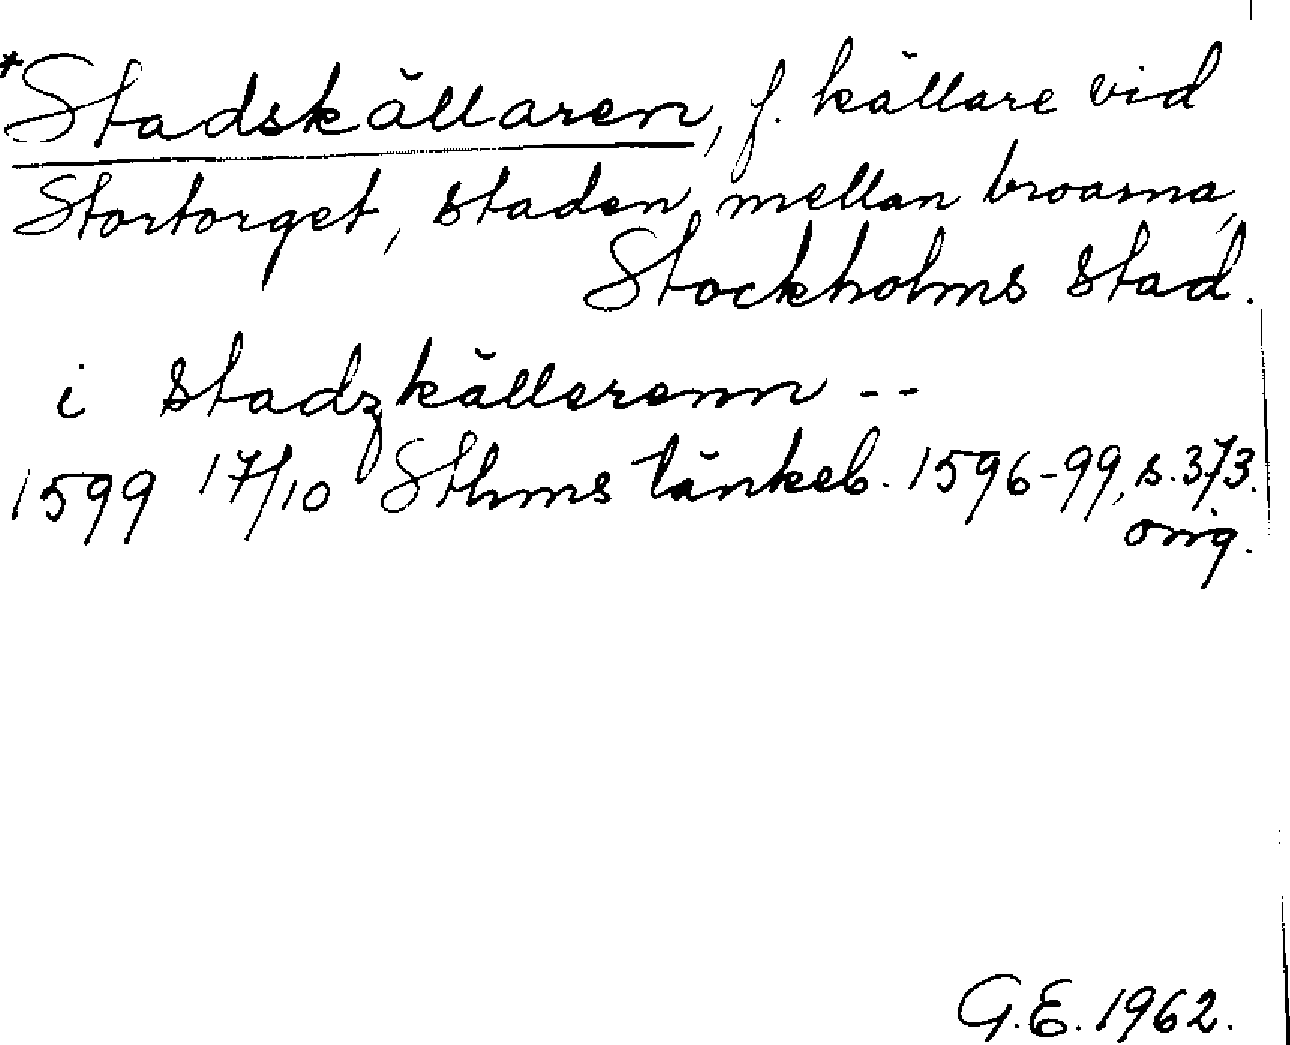 *Stadskällaren, f. källare vid
Stortorget, staden mellan broarna,
Stockholms stad.
i stadzkällerenn --
1599 17/10 Sthms tänkeb. 1596-99, s. 373.
orig.
G.E. 1962.